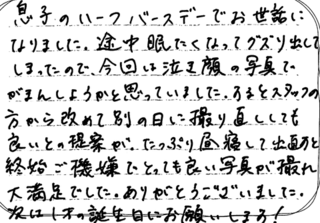 息子のハーフバースデーでお世話に
なりました。途中眠たくなってグズり出して
しまったので、今回は泣き顔の写真で
がまんしようかと思っていました。するとスタッフの
方から改めて別の日に撮り直ししても
良いとの提案が。たっぷり昼寝して出直すと
終始ご機嫌でとっても良い写真が撮れ
大満足でした。ありがとうございました。
次は1才の誕生日にお願いします!